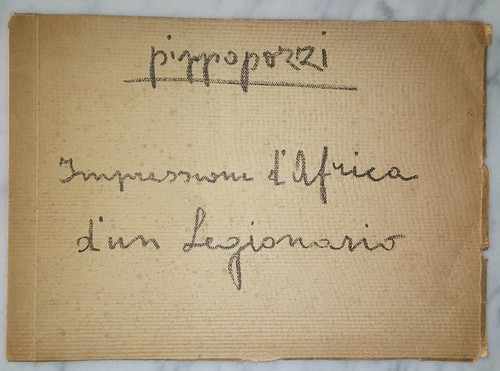 pippopozzi
Impressioni d'Africa
d'un Legionario